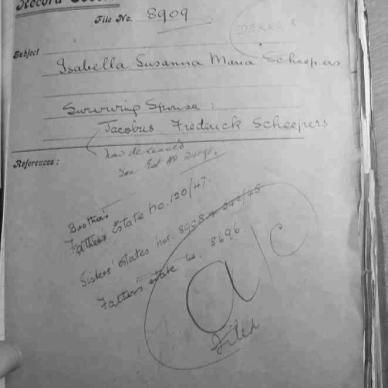 Record
File No. 8909
Subject
Isabella Susanna Maria Scheepers
Surviving Spouse :
Jacobus Frederick Scheepers
now deceased
See Est No
References :
Brothers
Fathers Estate no. 120/47.
Sisters' Estates nos. 8958
Father's estate no. 8696
a/c
Filed